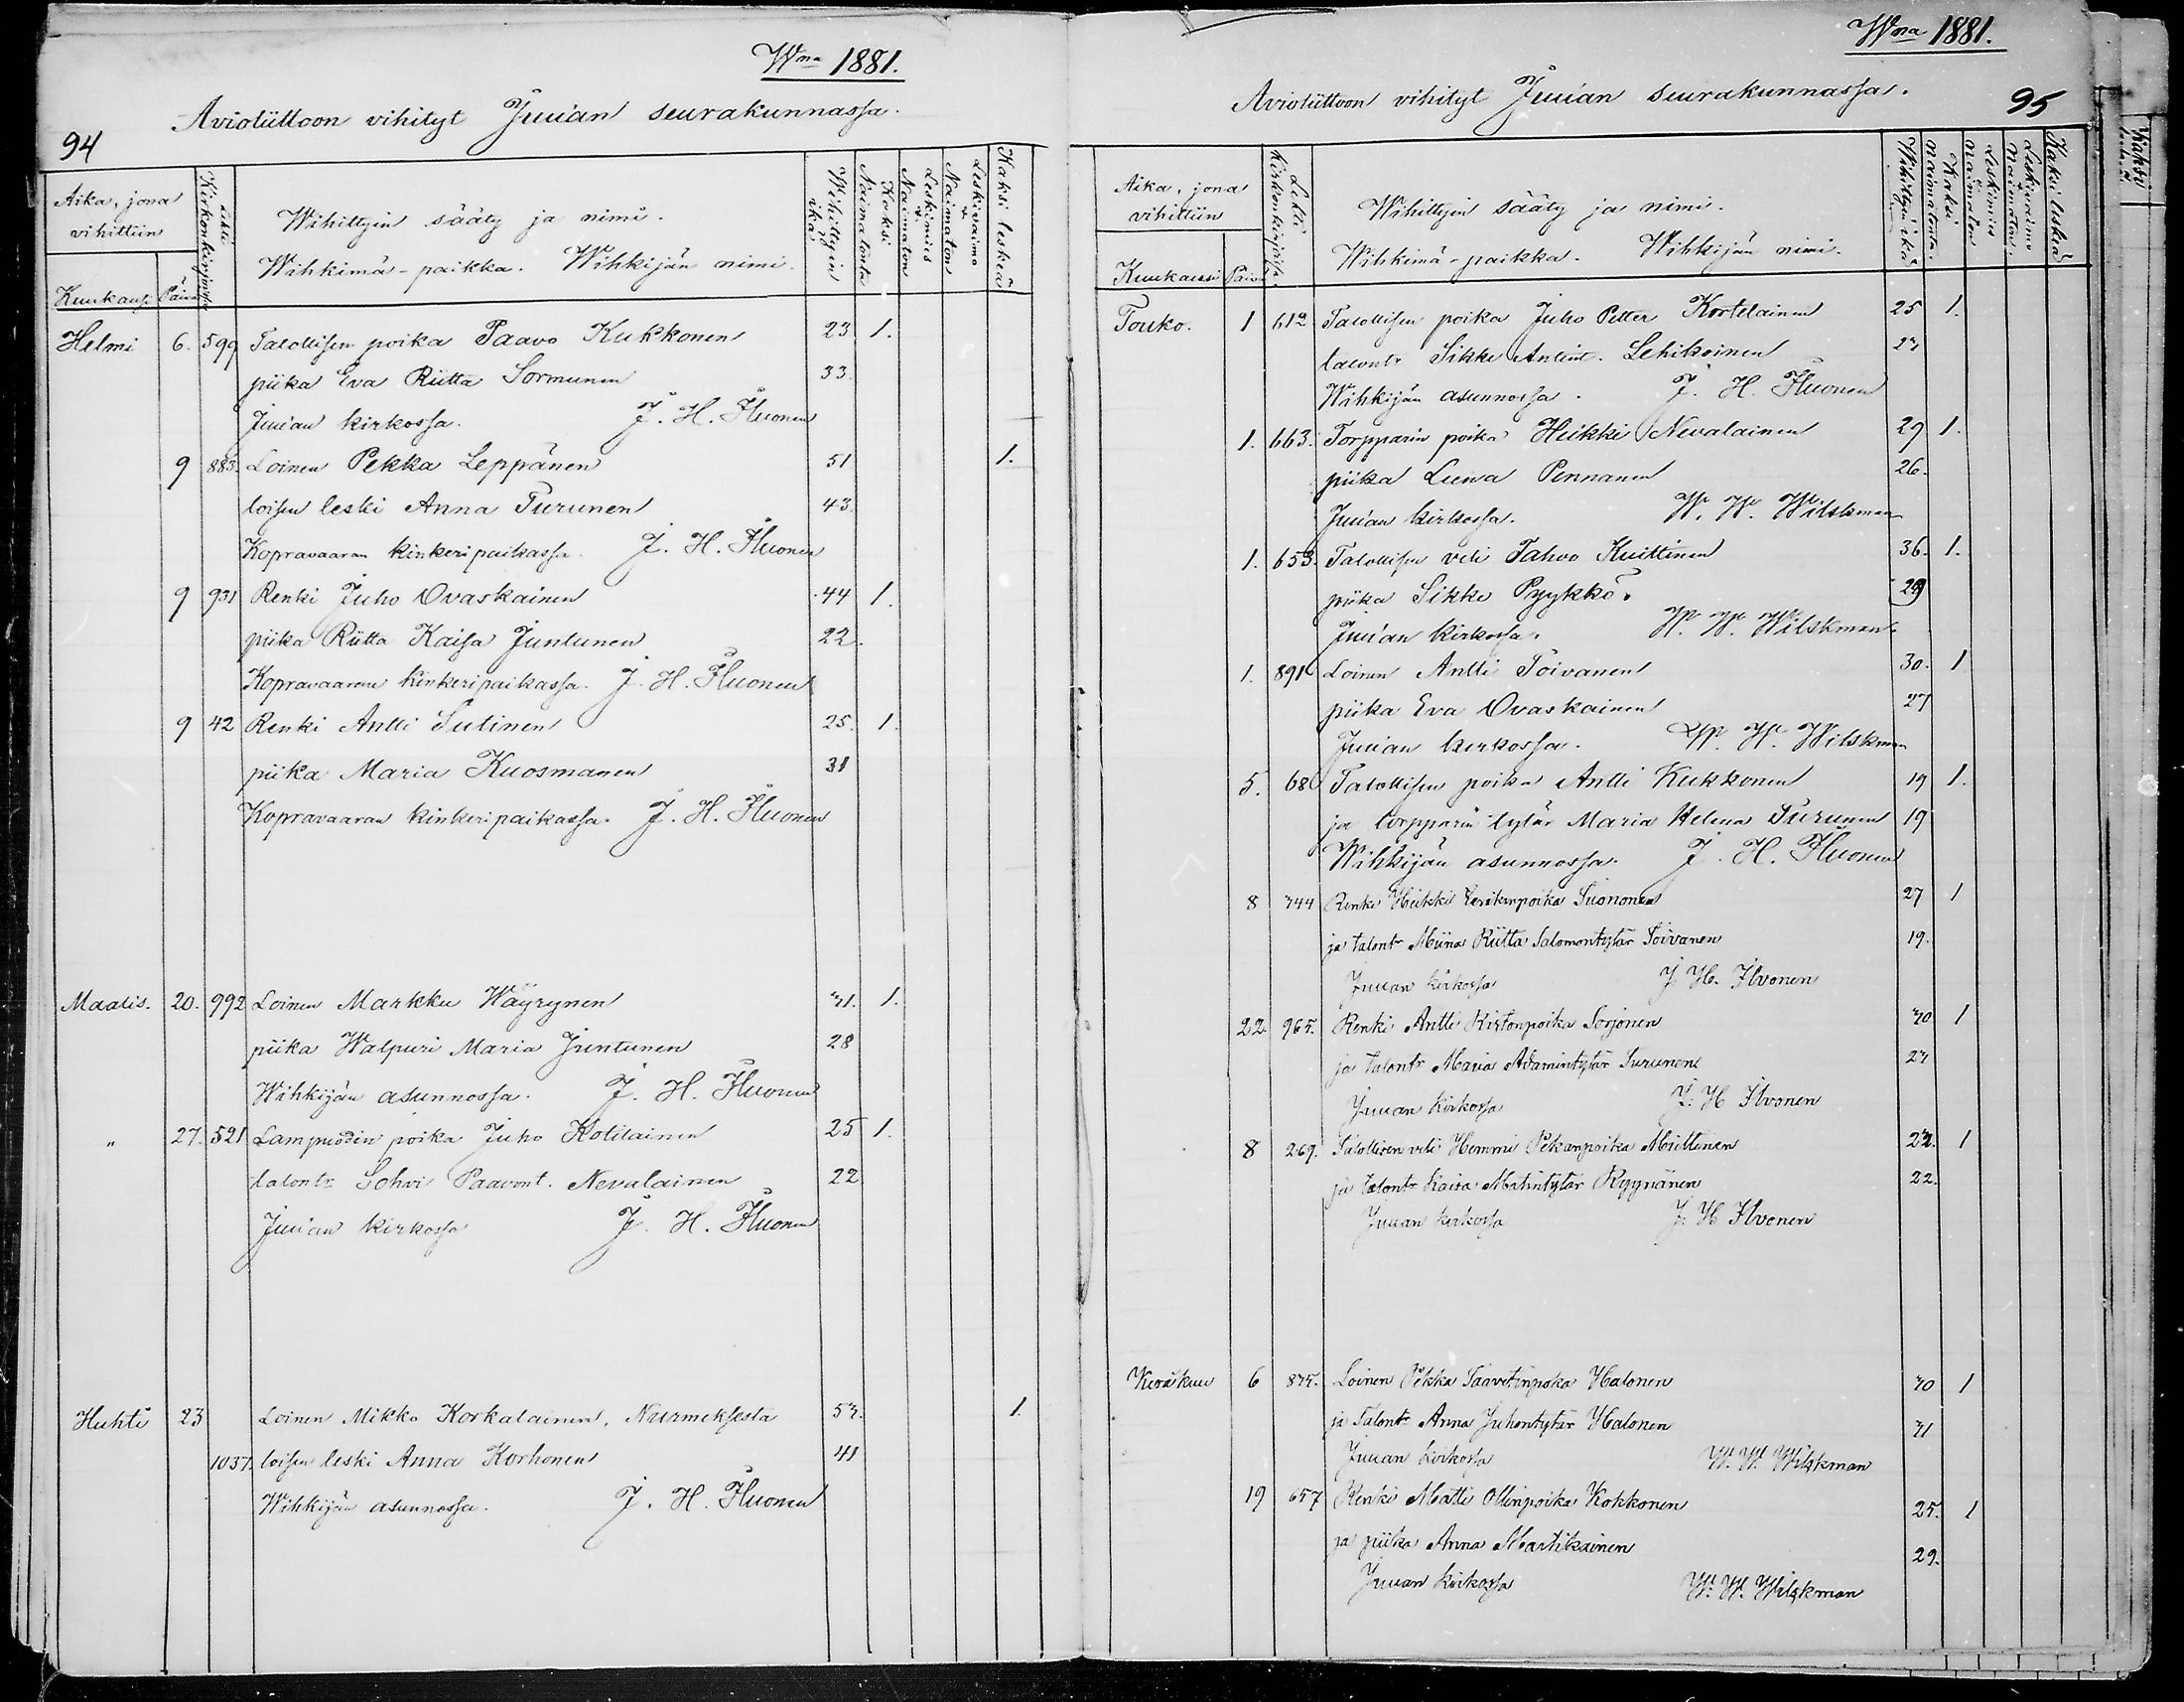 Wna 1881.
Avioliittoon vihityt Juuan seurakunnassa.
94
Aika, jona vihittiin
Kuukausi Päivä
Lehti Kirkonkirjassa
Wihittyin sääty ja nimi.
Wihkimä-paikka. Wihkijän nimi.
Wihittyin ikä
Kaksi Naimatonta
Leskimies Naimaton
Leskivaimo Naimaton
Kaksi leskeä
Helmi 6. 599 Talollisen poika Paavo Kukkonen 23 1.
piika Eva Riitta Sormunen 33.
Juuan kirkossa. J. H. Iluonen
9 883. Loinen Pekka Leppänen 51 1.
loisen leski Anna Turunen 43.
Kopravaaran kinkeripaikassa. J. H. Iluonen
9 931 Renki Juho Ovaskainen 44 1.
piika Riitta Kaisa Juntunen 22.
Kopravaaran kinkeripaikassa. J. H. Iluonen
9 42 Renki Antti Sutinen 25. 1.
piika Maria Kuosmanen 31
Kopravaaran kinkeripaikassa. J. H. Iluonen
Maalis. 20. 992 Loinen Markku Wäyrynen 31. 1.
piika Walpuri Maria Juntunen 28
Wihkijän asunnossa. J. H. Iluonen
" 27. 521 Lampuodin poika Juho Kotilainen 25 1.
talontr Sohvi Paavont. Nevalainen 22
Juuan kirkossa J. H. Iluonen
Huhti 23 Loinen Mikko Korkalainen, Nurmeksesta 53. 1.
1037. loisen leski Anna Korhonen 41
Wihkijän asunnossa. J. H. Iluonen
Wna 1881.
Avioliittoon vihityt Juuan seurakunnassa.
95
Aika, jona vihittiin
Kuukausi Päivä
Lehti Kirkonkirjassa.
Wihittyin sääty ja nimi.
Wihkimä-paikka. Wihkijän nimi.
Wihittyin ikä
Kaksi naimatonta.
Leskimies Naimaton
Leskivaimo Naimaton.
Kaksi leskeä
Touko. 1 612 Talollisen poika Juho Petter Kortelainen 25 1.
talontr Sikke Antint. Lehikoinen 23
Wihkijän asunnossa. J. H. Iluonen
1. 663. Torpparin poika Heikki Nevalainen 29 1.
piika Liena Pennanen 26.
Juuan kirkossa. W. W. Wilskman
1. 653. Talollisen veli Tahvo Kuittinen 36. 1.
piika Sikke Pyykkö. 29
Juuan kirkossa. W. W. Wilskman.
1. 891 Loinen Antti Toivanen 30. 1
piika Eva Ovaskainen 27
Juuan kirkossa. W. W. Wilskman
5. 68 Talollisen poika Antti Kukkonen 19 1.
ja torpparin tytär Maria Helena Turunen 19
Wihkijän asunnossa. J. H. Iluonen
8 344 Renki Heikki Eerikinpoika Suononen 27 1
ja talontr Miina Riitta Salomontytär Toivanen 19.
Juuan kirkossa J. H. Ilvonen
22. 965. Renki Antti Ristonpoika Sorjonen 30 1
ja talontr Maria Adamintytär Turunen 23
Juuan kirkossa J. H Ilvonen
8 269. Talollisen veli Hemmi Pekanpoika Miettinen 23. 1
ja talontr Kaisa Matintytär Ryynänen 22.
Juuan kirkossa J. H Ilvonen
Kesäkuu 6 835. Loinen Pekka Taavetinpoika Halonen 30 1
ja Talontr Anna Juhontytär Halonen 31
Juuan kirkossa W. W. Wilskman
19 657 Renki Matti Ollinpoika Kokkonen 25. 1
ja piika Anna Martikainen 29.
Juuan kirkossa W. W. Wilskman